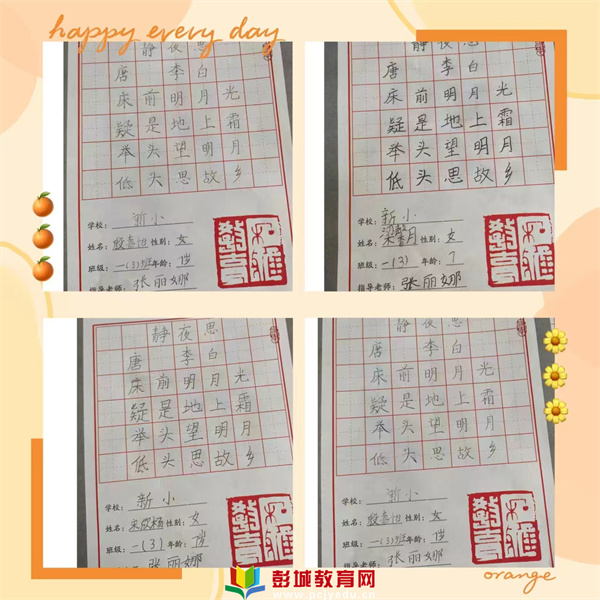 happy every day
静夜思
唐 李白
床前明月光
疑是地上霜
举头望明月
低头思故乡
学校: 新小
姓名: 性别: 女
班级: 一(3)班 年龄:
指导老师: 张丽娜
静夜思
唐 李白
床前明月光
疑是地上霜
举头望明月
低头思故乡
学校: 新小
姓名: 性别: 女
班级: 一(3) 年龄: 7
指导老师: 张丽娜
静夜思
唐 李白
床前明月光
疑是地上霜
举头望明月
低头思故乡
学校: 新小
姓名: 性别: 女
班级: 一(3) 年龄:
张丽娜
静夜思
唐 李白
床前明月光
疑是地上霜
举头望明月
低头思故乡
学校: 新小
姓名: 性别: 女
班级: 一(3)班 年龄:
张丽娜
彭城教育网
www.pcjyedu.cn
orange